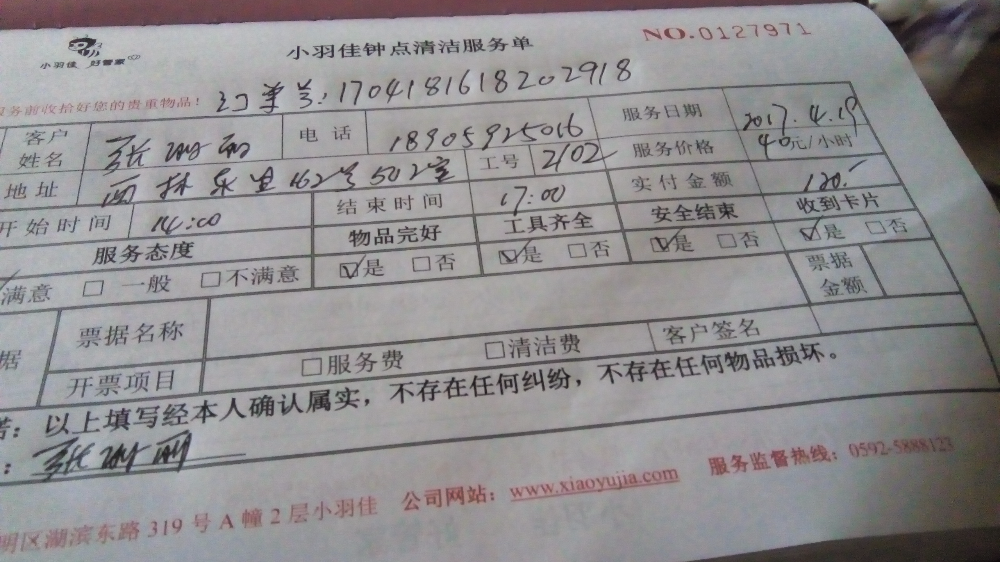 小羽佳 好管家
小羽佳钟点清洁服务单
NO.0127971
服务前收拾好您的贵重物品!
订单号:1704181618202918
客户姓名 张 丽 电话 18905925016 服务日期 2017.4.19
地址 西林东里162号502室 工号 2102 服务价格 40元/小时
开始时间 14:00 结束时间 17:00 实付金额 120.-
服务态度 物品完好 工具齐全 安全结束 收到卡片
满意 □ 一般 □不满意 ☑是 □否 ☑是 □否 ☑是 □否 ☑是 □否
据 票据名称 票据金额
开票项目 □服务费 □清洁费 客户签名
诺:以上填写经本人确认属实,不存在任何纠纷,不存在任何物品损坏。
: 张 丽
明区湖滨东路 319 号 A 幢 2 层小羽佳 公司网站:www.xiaoyujia.com 服务监督热线:0592-5888123